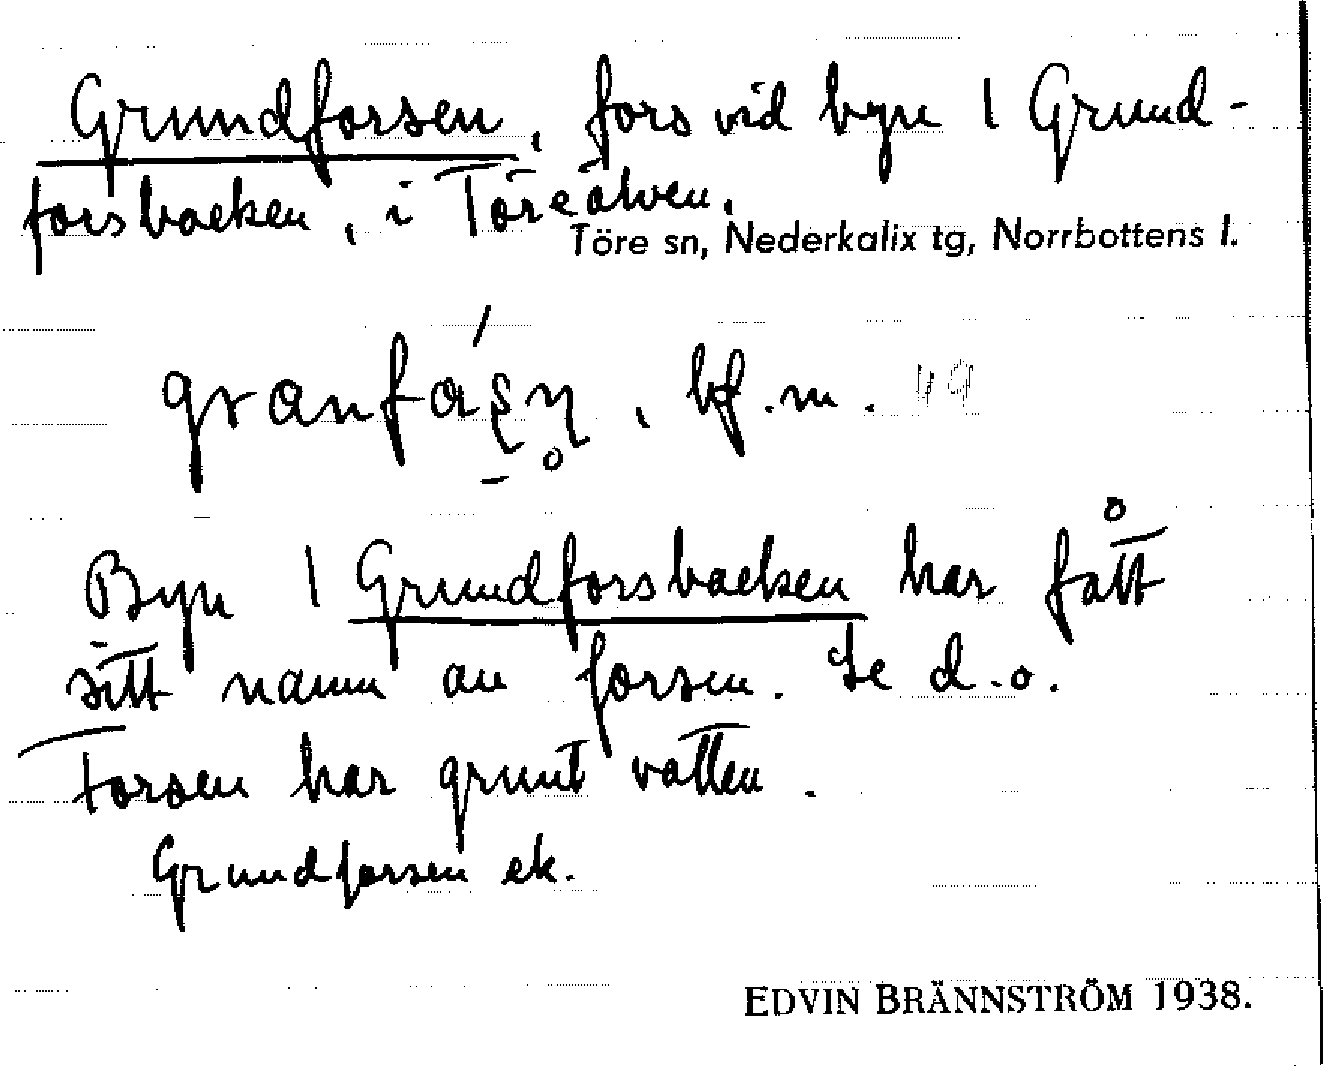 Grundforsen, fors vid byn 1 Grund-
forsbacken, i Töreälven.
Töre sn, Nederkalix tg, Norrbottens l.
bf. m.
Byn 1 Grundforsbacken har fått
sitt namn av forsen. Se d.o.
Forsen har grunt vatten.
Grundforsen ek.
EDVIN BRÄNNSTRÖM 1938.